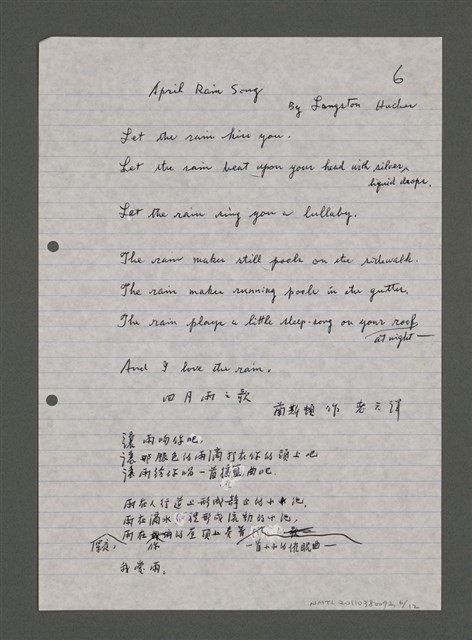 6
April Rain Song
By Langston Hughes
Let the rain kiss you.
Let the rain beat upon your head with silver
liquid drops.
Let the rain sing you a lullaby.
The rain makes still pools on the sidewalk.
The rain makes running pools in the gutter.
The rain plays a little sleep-song on your roof
at night—
And I love the rain.
四月雨之歌
作 譯
讓雨吻你吧,
讓那銀色的雨滴打在你的頭上吧
讓雨給你唱一首搖籃曲吧.
雨在人行道上形成靜止的小水池.
雨在 水 形成流動的小池,
雨在 的屋頂上
你
一首小小的催眠曲—
我愛雨.